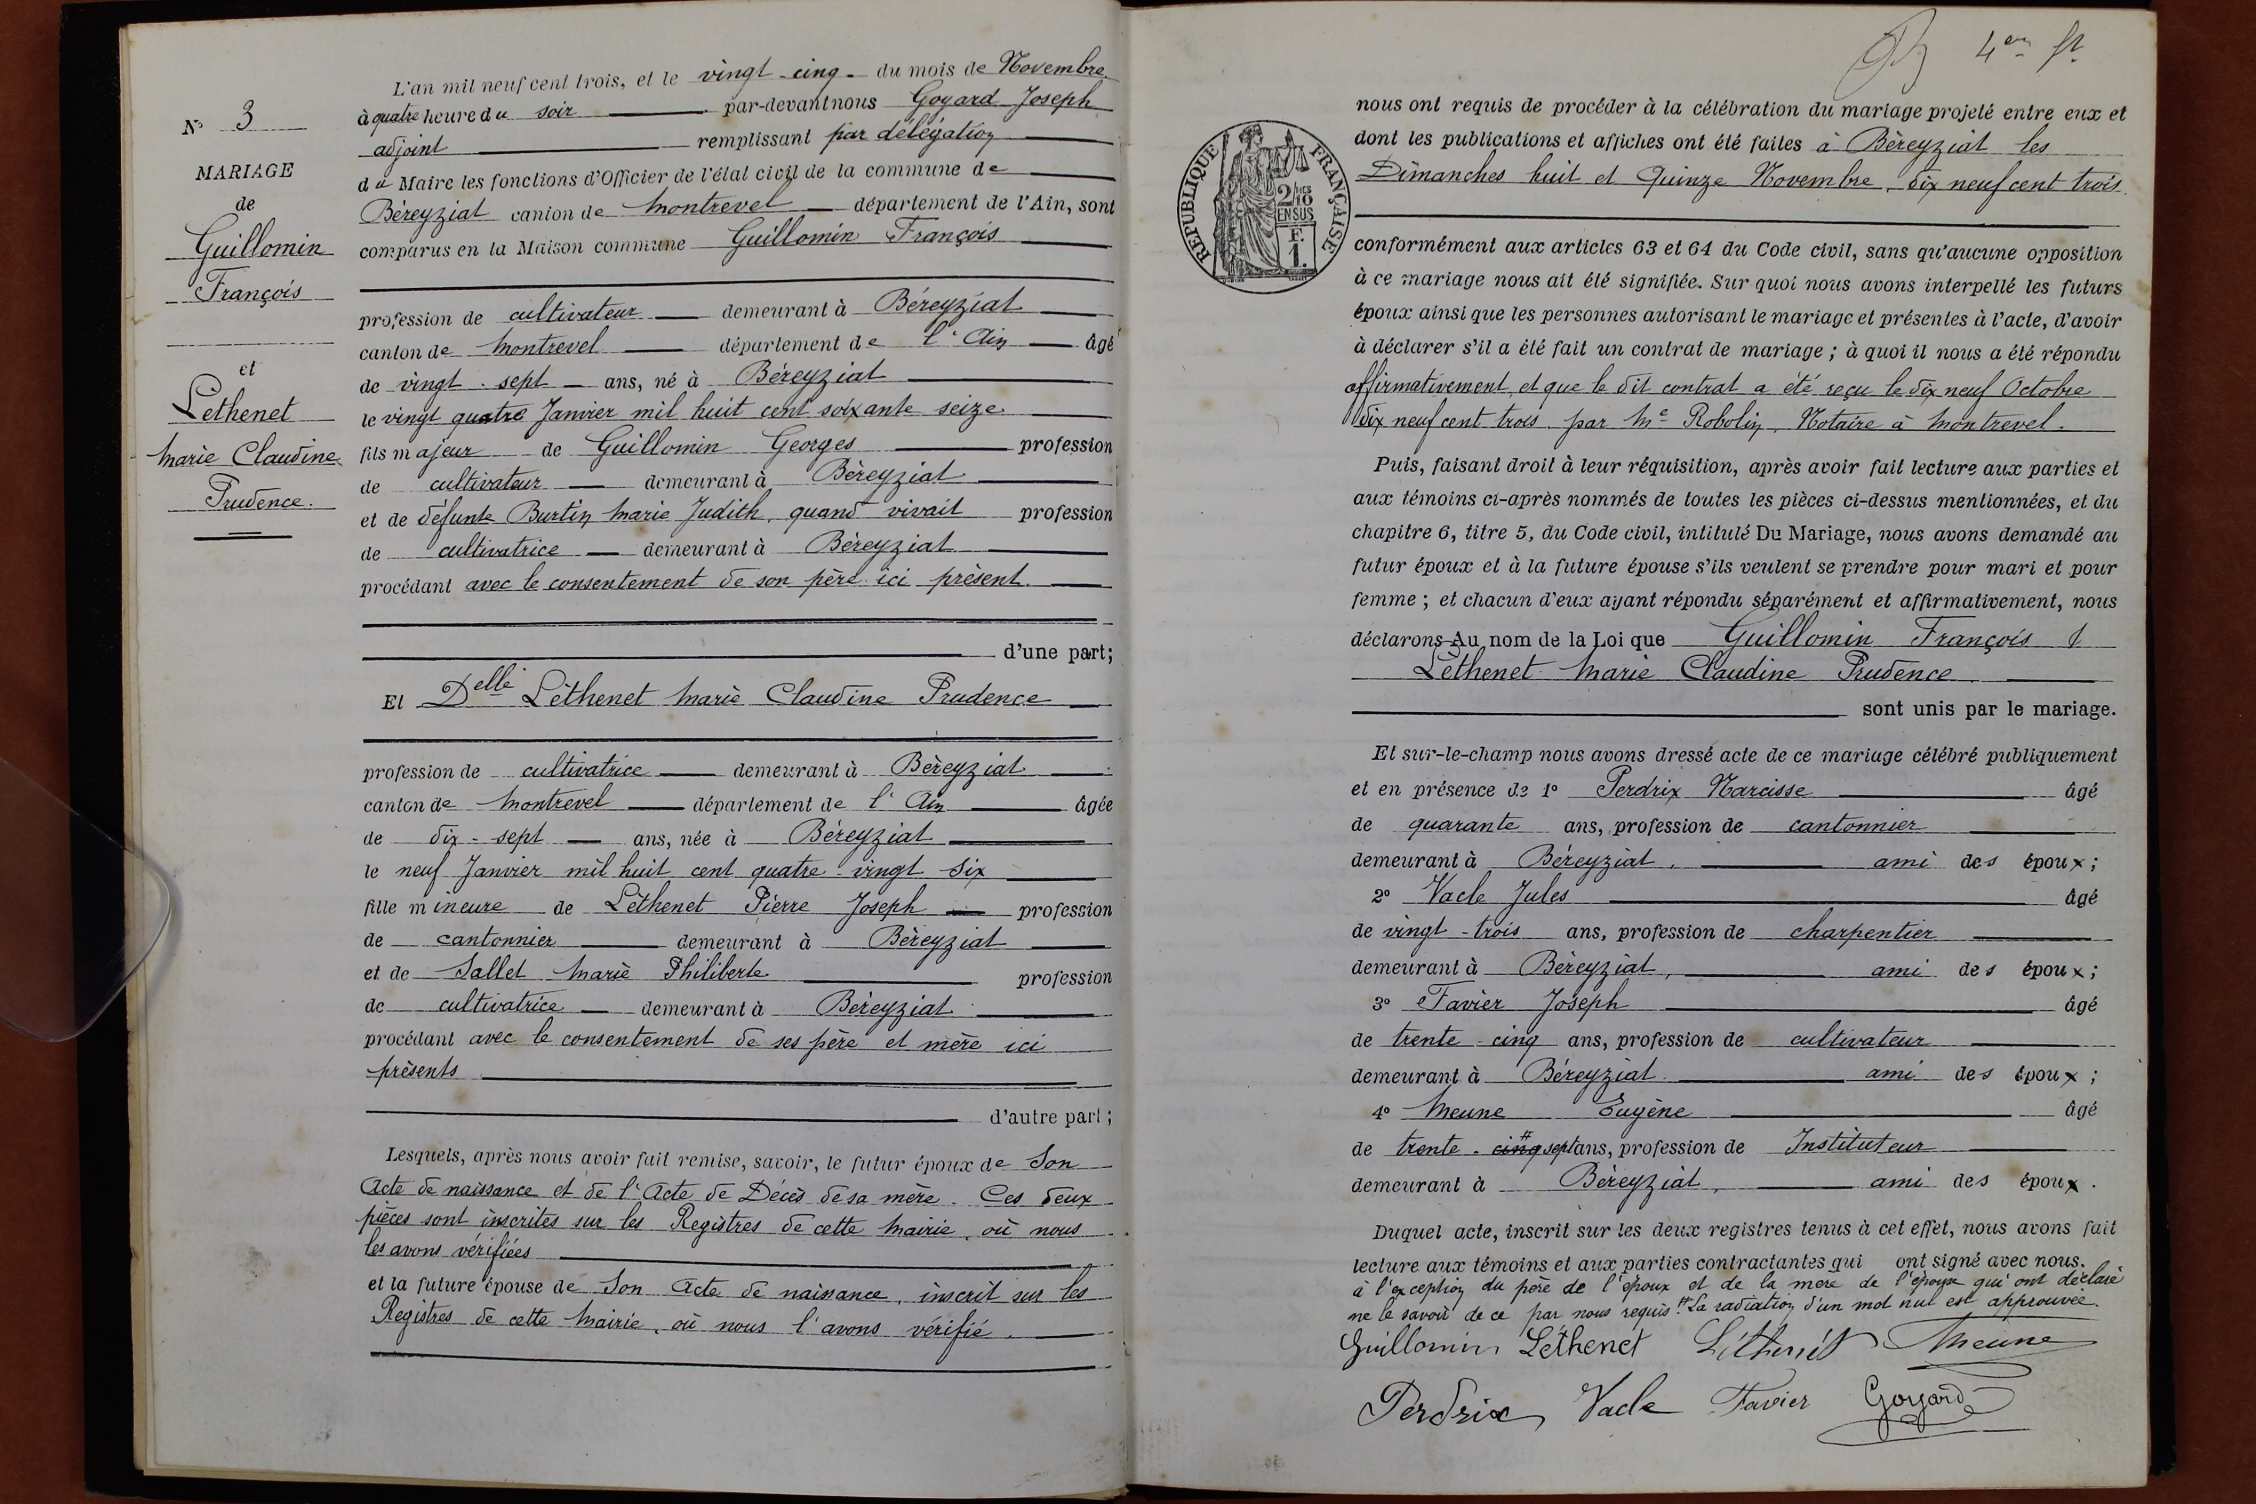 N° 3
MARIAGE
de
Guillomin
François
et
Lèthenet
Marie Claudine
Prudence.
L'an mil neuf cent trois, et le vingt-cinq du mois de Novembre
à quatre heure du soir par-devant nous Goyard Joseph
adjoint remplissant par délégation
du Maire les fonctions d'Officier de l'état civil de la commune de
Béreyziat canton de Montrevel département de l'Ain, sont
comparus en la Maison commune Guillomin François
profession de cultivateur demeurant à Béreyziat
canton de Montrevel département de l'Ain âgé
de vingt-sept ans, né à Béreyziat
le vingt quatre Janvier mil huit cent soixante seize
fils majeur de Guillomin Georges profession
de cultivateur demeurant à Bèreyziat
et de défunte Burtin Marie Judith, quand vivait profession
de cultivatrice demeurant à Bèreyziat
procédant avec le consentement de son père ici présent.
d'une part;
Et Delle Lèthenet Marie Claudine Prudence
profession de cultivatrice demeurant à Bèreyziat
canton de Montrevel département de l'Ain âgée
de dix-sept ans, née à Béreyziat
le neuf Janvier mil huit cent quatre-vingt six
fille mineure de Lèthenet Pierre Joseph profession
de cantonnier demeurant à Bèreyziat
et de Sallet Marie Philiberte profession
de cultivatrice demeurant à Bèreyziat
procédant avec le consentement de ses père et mère ici
présents
d'autre part;
Lesquels, après nous avoir fait remise, savoir, le futur époux de Son
Acte de naissance et de l'Acte de Décès de sa mère. Ces deux
pièces sont inscrites sur les Registres de cette Mairie, où nous
les avons vérifiées
et la future épouse de Son Acte de naissance, inscrit sur les
Registres de cette Mairie, où nous l'avons vérifié.
4e
RÉPUBLIQUE FRANÇAISE
2/10
EN SUS
F.
1.
nous ont requis de procéder à la célébration du mariage projeté entre eux et
dont les publications et affiches ont été faites à Bèreyziat les
Dimanches huit et Quinze Novembre, dix neuf cent trois
conformément aux articles 63 et 64 du Code civil, sans qu'aucune opposition
à ce mariage nous ait été signifiée. Sur quoi nous avons interpellé les futurs
époux ainsi que les personnes autorisant le mariage et présentes à l'acte, d'avoir
à déclarer s'il a été fait un contrat de mariage; à quoi il nous a été répondu
affirmativement, et que le dit contrat a été reçu le dix neuf Octobre
dix neuf cent trois par Me Robolin, Notaire à Montrevel.
Puis, faisant droit à leur réquisition, après avoir fait lecture aux parties et
aux témoins ci-après nommés de toutes les pièces ci-dessus mentionnées, et du
chapitre 6, titre 5, du Code civil, intitulé Du Mariage, nous avons demandé au
futur époux et à la future épouse s'ils veulent se prendre pour mari et pour
femme; et chacun d'eux ayant répondu séparément et affirmativement, nous
déclarons Au nom de la Loi que Guillomin François &
Lèthenet Marie Claudine Prudence
sont unis par le mariage.
Et sur-le-champ nous avons dressé acte de ce mariage célébré publiquement
et en présence de 1° Perdrix Narcisse âgé
de quarante ans, profession de cantonnier
demeurant à Béreyziat, ami des époux;
2° Vacle Jules âgé
de vingt-trois ans, profession de charpentier
demeurant à Bèreyziat, ami des époux;
3° Favier Joseph âgé
de trente-cinq ans, profession de cultivateur
demeurant à Béreyziat ami des époux;
4° Meune Eugène âgé
de trente-cinq sept ans, profession de Instituteur
demeurant à Bèreyziat, ami des époux.
Duquel acte, inscrit sur les deux registres tenus à cet effet, nous avons fait
lecture aux témoins et aux parties contractantes qui ont signé avec nous.
à l'exception du père de l'époux et de la mère de l'épouse qui ont déclaré
ne le savoir de ce par nous requis. # La radiation d'un mot nul est approuvée.
Guillomin Léthenet Léthenet Meune
Perdrix Vacle Favier Goyard